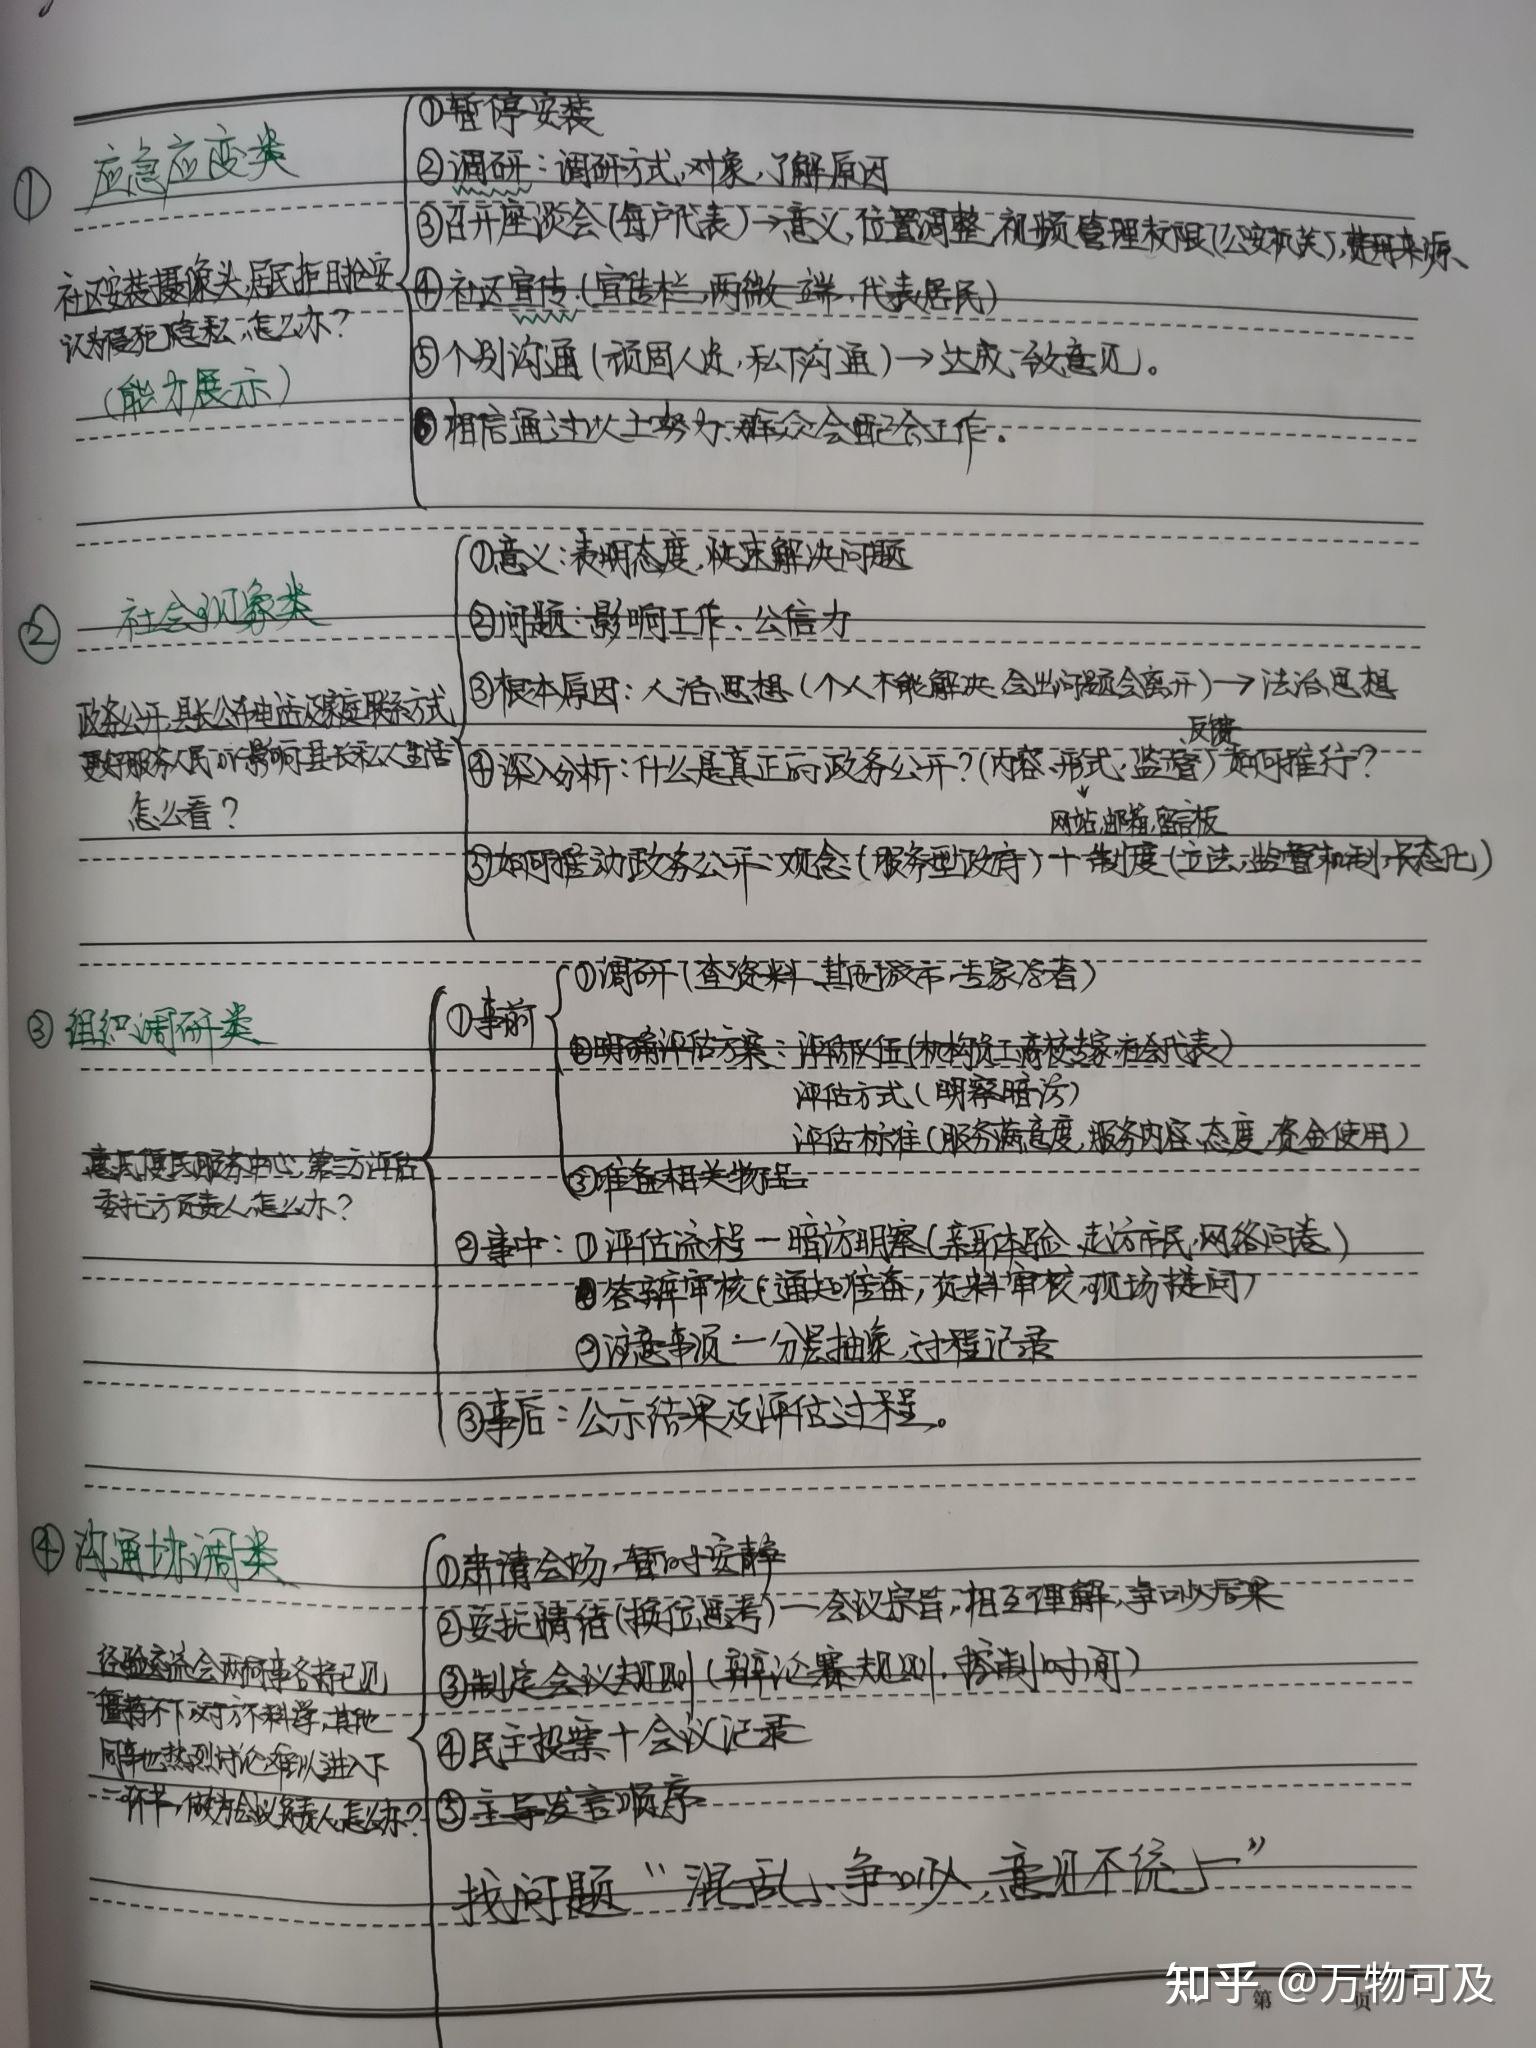 ① 应急应变类
社区安装摄像头,居民拒且抢安
认为侵犯隐私,怎么办?
(能力展示)
①暂停安装
②调研:调研方式,对象,了解原因
③召开座谈会(每户代表)→意义,位置调整,视频管理权限(公安机关),费用来源、
④社区宣传(宣传栏,两微一端,代表居民)
⑤个别沟通(顽固人处,私下沟通)→达成一致意见。
⑥相信通过以上努力,群众会配合工作.
② 社会现象类
政务公开,县长公布电话及家庭联系方式
更好服务人民 or 影响县长私人生活
怎么看?
①意义:表明态度,快速解决问题
②问题:影响工作、公信力
③根本原因:人治思想(个人不能解决,会出问题会离开)→法治思想
反馈
④深入分析:什么是真正的政务公开?(内容、形式、监督)如何推行?
网站,邮箱,留言板
⑤如何推动政务公开:观念(服务型政府)+制度(立法,监督机制,常态化)
③ 组织调研类
惠民便民服务中心,第三方评估
委托方负责人,怎么办?
①事前
①调研(查资料,其他城市,专家学者)
②明确评估方案:评估队伍(机构员工,高校专家,社会代表)
评估方式(明察暗访)
评估标准(服务满意度,服务内容,态度,资金使用)
③准备相关物品
②事中:①评估流程—暗访明察(亲身体验,走访市民,网络问卷)
答辩审核(通知准备,资料审核,现场提问)
②注意事项—分层抽象,过程记录
③事后:公示结果及评估过程。
④ 沟通协调类
经验交流会两同事各持己见
僵持不下,对方不科学,其他
同事也热烈讨论,难以进入下
一环节,做为会议负责人,怎么办?
①肃清会场,暂时安静
②安抚情绪(换位思考)—会议宗旨,相互理解,争吵后果
③制定会议规则(辩论赛规则,控制时间)
④民主投票+会议记录
⑤主导发言顺序
找问题“混乱、争吵,意见不统一”
第 页
知乎 @万物可及